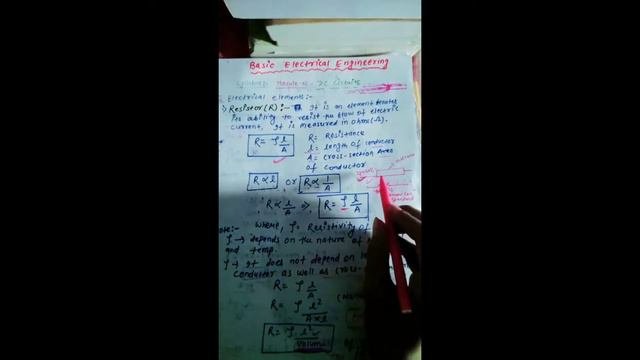 Basic Electrical Engineering
Syllabus Module-1: DC Circuits
Electrical elements:-
Resistor(R):- It is an element denotes
its ability to resist the flow of electric
current, It is measured in ohms(Ω).
R = ρ l/A
R = Resistance
l = length of conductor
A = cross-section Area
of conductor
R ∝ l or R ∝ 1/A
R ∝ l/A ⇒ R = ρ l/A
where, ρ = Resistivity of
Note:-
ρ → depends on the nature of
and temp.
ρ → It does not depend on
conductor as well as cross-
R = ρ l/A
R = ρ l²/A×l
R = ρ l²/Volume